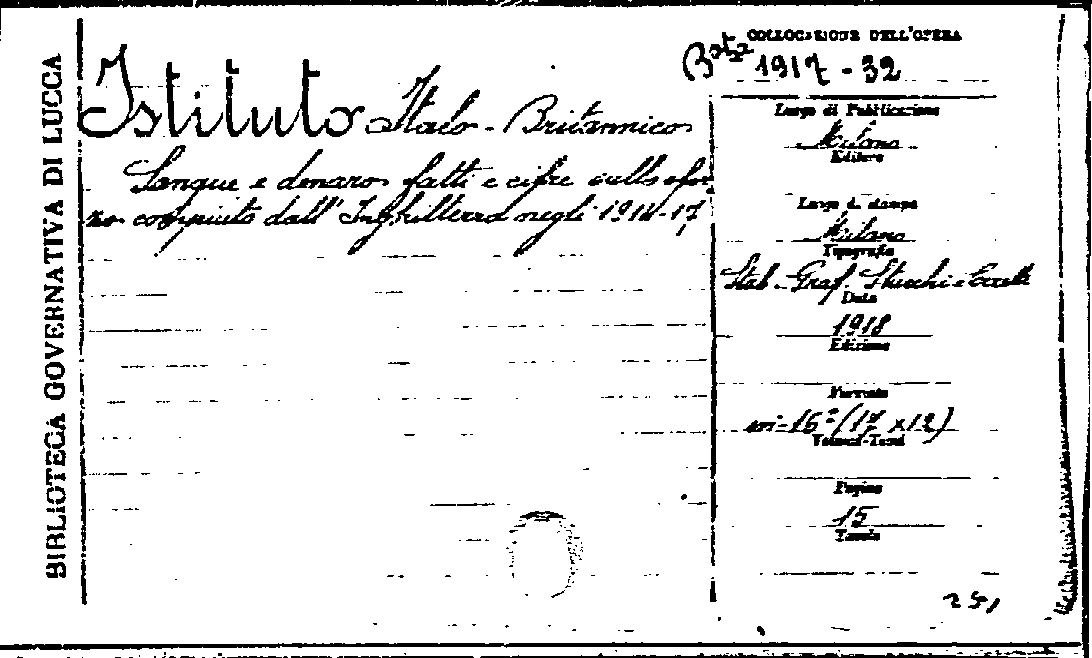 BIBLIOTECA GOVERNATIVA DI LUCCA
Istituto Italo-Britannico
Sangue e denaro fatti e cifre sullo sfor
zo compiuto dall'Inghilterra negli 1914-17
COLLOCAZIONE DELL'OPERA
Busta 1917-32
Luogo di Pubblicazione
Milano
Editore
Luogo di stampa
Milano
Tipografia
Stab. Graf. Stucchi e
Data
1918
Edizione
Formato
in-16° (17 x 12)
Volumi-Tomi
Pagine
15
Tavole
251